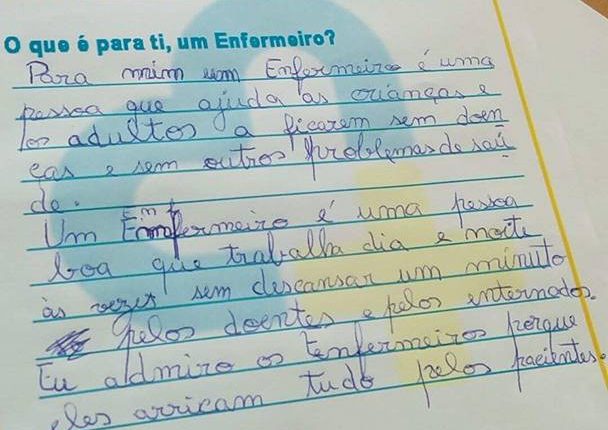 O que é para ti, um Enfermeiro?
Para mim um Enfermeiro é uma
pessoa que ajuda as crianças e
os adultos a ficarem sem doen
ças e sem outros problemas de saú
de.
Um Enfermeiro é uma pessoa
boa que trabalha dia e noite
às vezes sem descansar um minuto
pelos doentes e pelos internados.
Eu admiro os Enfermeiros porque
eles arricam tudo pelos pacientes.